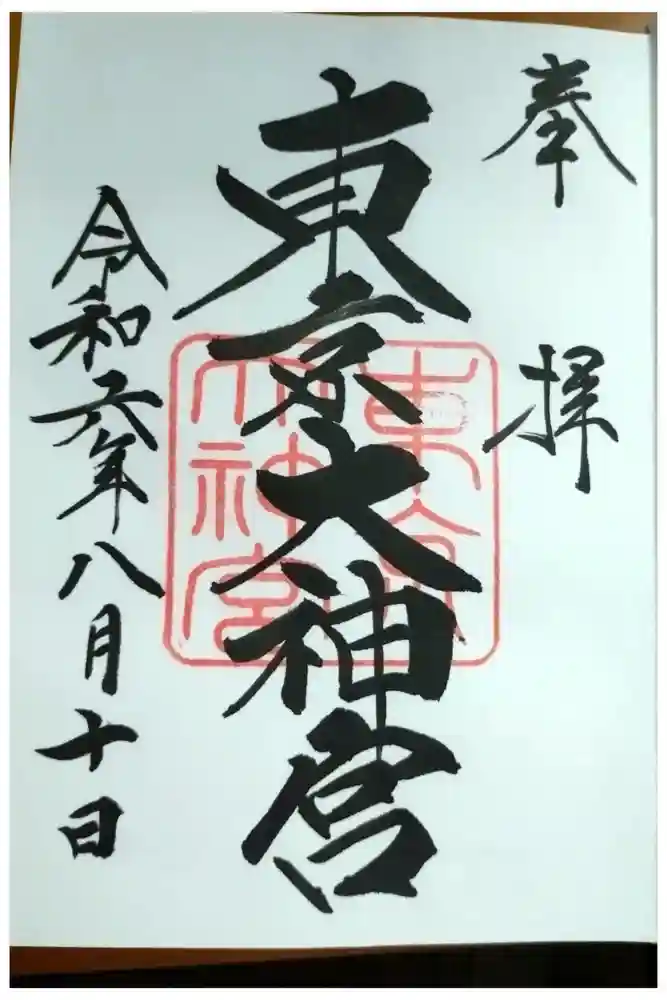 奉拝
東京大神宮
東京
大神宮
令和元年八月十日